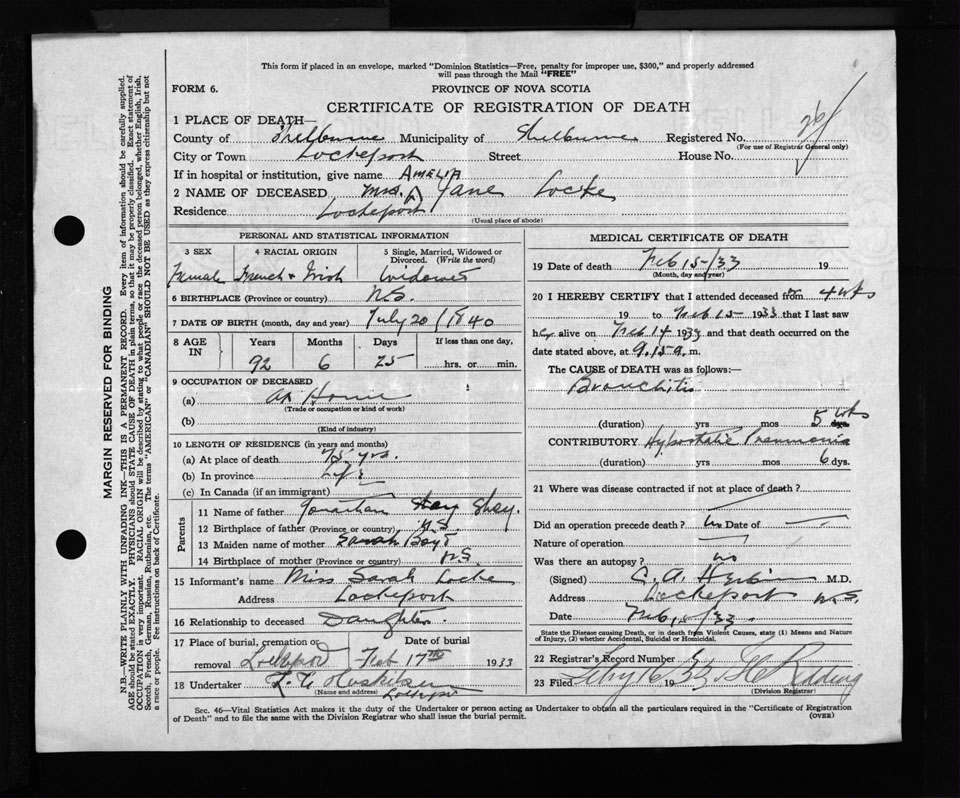 This form if placed in an envelope, marked "Dominion Statistics—Free, penalty for improper use, $300," and properly addressed
will pass through the Mail "FREE"
FORM 6.
PROVINCE OF NOVA SCOTIA
CERTIFICATE OF REGISTRATION OF DEATH
1 PLACE OF DEATH—
County of Shelburne Municipality of Shelburne Registered No.
(For use of Registrar General only)
City or Town Lockeport Street House No.
If in hospital or institution, give name AMELIA
2 NAME OF DECEASED Mrs. Jane Locke
Residence Lockeport
(Usual place of abode)
PERSONAL AND STATISTICAL INFORMATION
3 SEX 4 RACIAL ORIGIN 5 Single, Married, Widowed or Divorced. (Write the word)
Female French & Irish Widowed
6 BIRTHPLACE (Province or country) N.S.
7 DATE OF BIRTH (month, day and year) July 20/1840
8 AGE IN Years Months Days If less than one day,
92 6 25 hrs. or min.
9 OCCUPATION OF DECEASED
(a) At Home
(Trade or occupation or kind of work)
(b)
(Kind of industry)
10 LENGTH OF RESIDENCE (in years and months)
(a) At place of death 75 yrs.
(b) In province Life
(c) In Canada (if an immigrant)
Parents
11 Name of father Jonathan Shay.
12 Birthplace of father (Province or country) N.S.
13 Maiden name of mother Sarah Boyd
14 Birthplace of mother (Province or country) N.S
15 Informant's name Miss Sarah Locke
Address Lockeport
16 Relationship to deceased Daughter.
17 Place of burial, cremation or removal Lockeport Date of burial Feb 17th 1933
18 Undertaker Lockeport
(Name and address)
MEDICAL CERTIFICATE OF DEATH
19 Date of death Feb 15/33 19
(Month, day and year)
20 I HEREBY CERTIFY that I attended deceased from 4 wks
19 to Feb 15- 1933 that I last saw
her alive on Feb 14 1933 and that death occurred on
date stated above, at 9.15 a. m.
The CAUSE of DEATH was as follows:—
Bronchitis
(duration) yrs mos 5 wks dys.
CONTRIBUTORY Hypostatic Pneumonia
(duration) yrs mos 6 dys.
21 Where was disease contracted if not at place of death?
Did an operation precede death? No Date of
Nature of operation
Was there an autopsy? no
(Signed) C. A. M.D.
Address Lockeport N.S.
Date Feb, 15/33.
State the Disease causing Death, or in death from Violent Causes, state (1) Means and Nature
of Injury, (2) whether Accidental, Suicidal or Homicidal.
22 Registrar's Record Number
23 Filed Feby 16 1933 Redding
(Division Registrar)
Sec. 46—Vital Statistics Act makes it the duty of the Undertaker or person acting as Undertaker to obtain all the particulars required in the "Certificate of Registration
of Death" and to file the same with the Division Registrar who shall issue the burial permit.
(OVER)
MARGIN RESERVED FOR BINDING
N.B.—WRITE PLAINLY WITH UNFADING INK—THIS IS A PERMANENT RECORD. Every item of information should be carefully supplied.
AGE should be stated EXACTLY. PHYSICIANS should STATE CAUSE OF DEATH in plain terms, so that it may be properly classified. Exact statement of
OCCUPATION is very important. RACIAL ORIGIN will be described by stating to what people or race the deceased person belonged, whether English, Irish,
Scotch, French, German, Russian, Ruthenian, etc. The terms "AMERICAN" or "CANADIAN" SHOULD NOT BE USED as they express citizenship but not
a race or people. See instructions on back of Certificate.